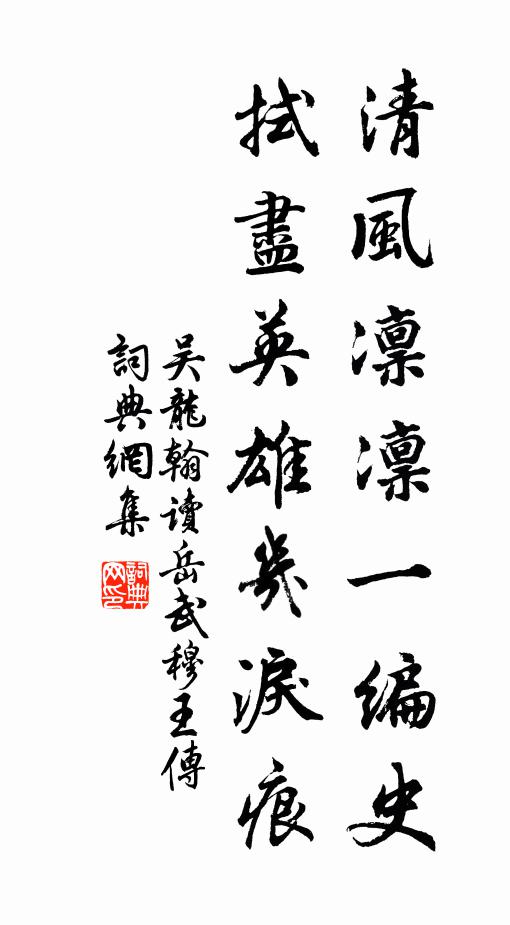 清風凛凛一編史
拭盡英雄幾淚痕
吴龍翰讀岳武穆王傳
詞典網集
詞典网印